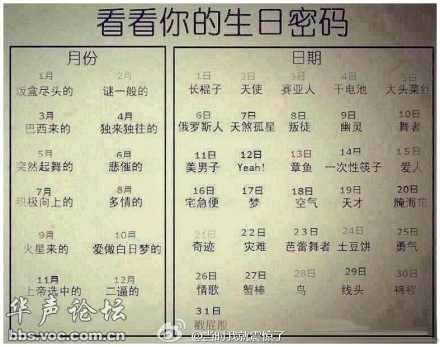 看看你的生日密码
月份 日期
1月 2月 1日 2日 3日 4日 5日
饭盒尽头的 谜一般的 长棍子 天使 赛亚人 干电池 大头菜丝
3月 4月 6日 7日 8日 9日 10日
巴西来的 独来独往的 俄罗斯人 天煞孤星 叛徒 幽灵 舞者
5月 6月 11日 12日 13日 14日 15日
突然起舞的 悲催的 美男子 Yeah! 章鱼 一次性筷子 爱人
7月 8月 16日 17日 18日 19日 20日
积极向上的 多情的 宅急便 梦 空气 天才 腌海带
9月 10月 21日 22日 23日 24日 25日
火星来的 爱做白日梦的 奇迹 灾难 芭蕾舞者 土豆饼 勇气
11月 12月 26日 27日 28日 29日 30日
上帝选中的 二逼的 情歌 蟹棒 鸟 线头 裤衩
31日
戳屁股
华声论坛
bbs.voc.com.cn
@当时我就震惊了